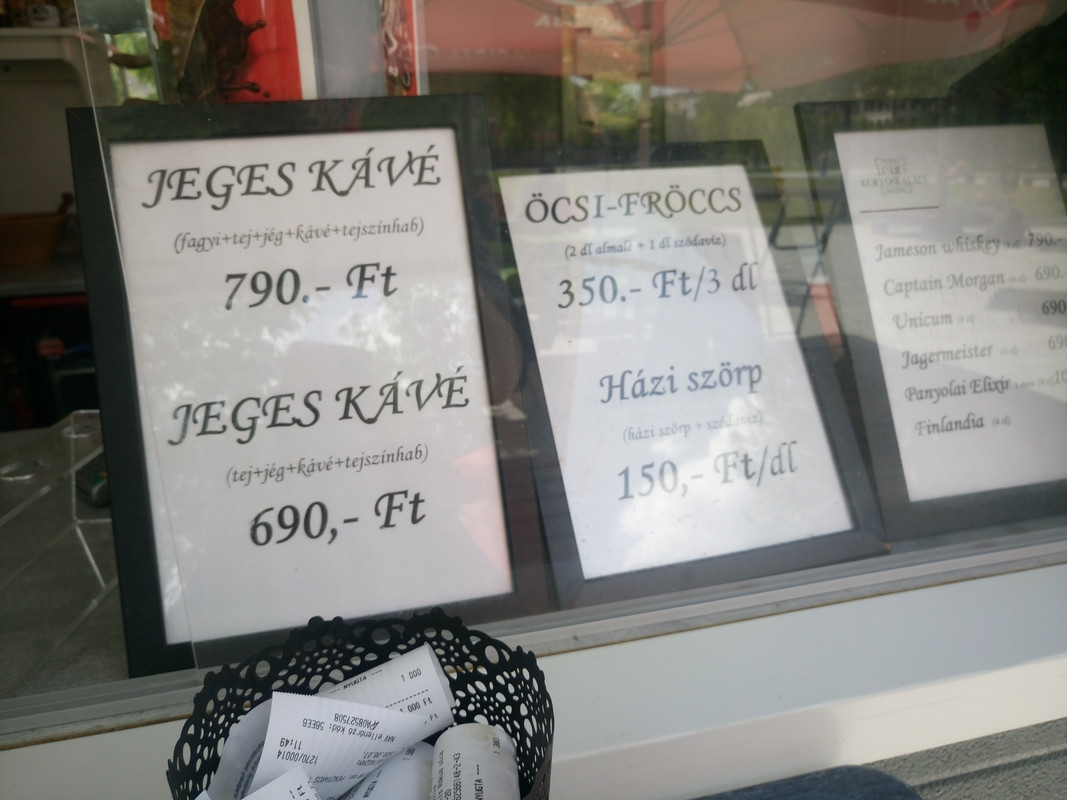 JEGES KÁVÉ
(fagyi+tej+jég+kávé+tejszínhab)
790.- Ft
JEGES KÁVÉ
(tej+jég+kávé+tejszínhab)
690,- Ft
ÖCSI-FRÖCCS
(2 dl almalé + 1 dl szódavíz)
350.- Ft/3 dl
Házi szörp
(házi szörp + szódavíz)
150,- Ft/dl
Jameson whiskey 790.-
Captain Morgan 690.-
Unicum 690
Jagermeister
Panyolai Elixír
Finlandia
NYUGTA
1 000
1 000 Ft
Ft
NAV ellenőrző kód: 56EE6
11:49
1270/00014
NYUGTA